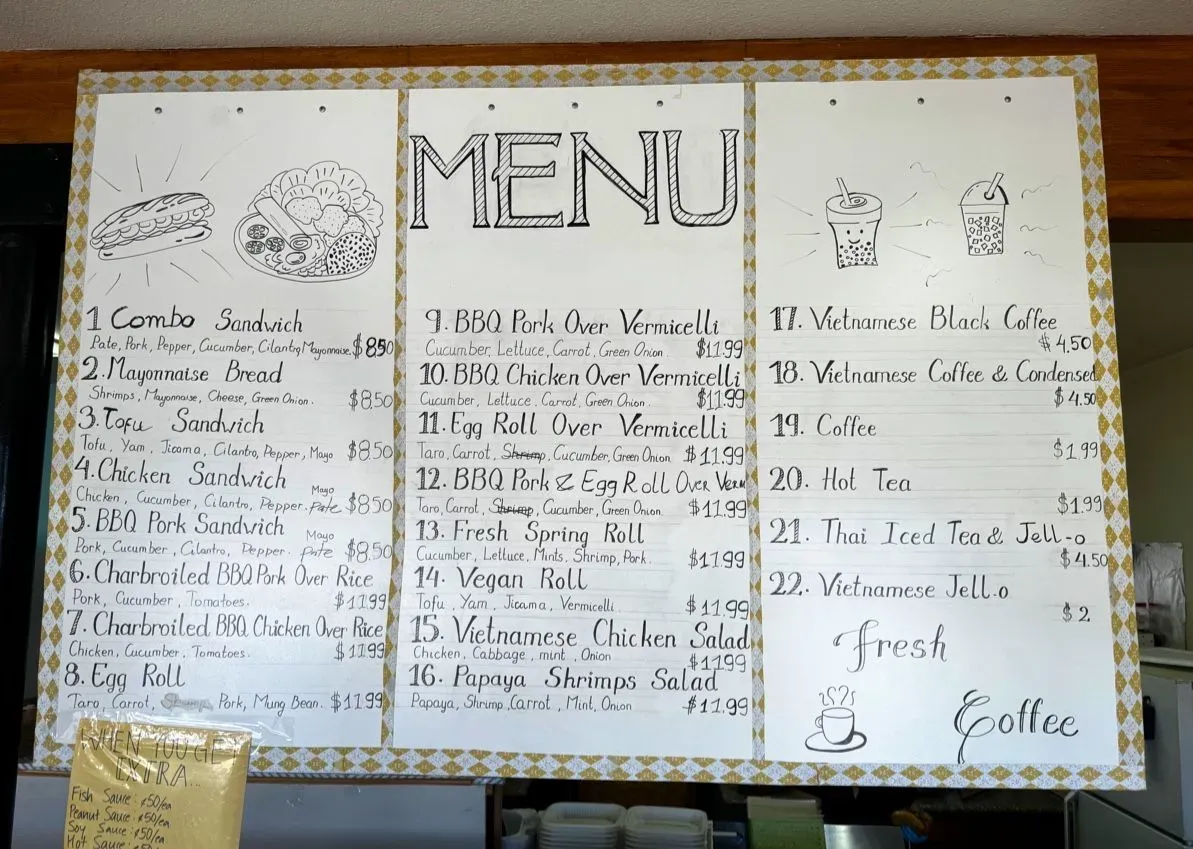 MENU
1 Combo Sandwich
Pate, Pork, Pepper, Cucumber, Cilantro, Mayonnaise. $8.50
2. Mayonnaise Bread
Shrimps, Mayonnaise, Cheese, Green Onion. $8.50
3. Tofu Sandwich
Tofu, Yam, Jicama, Cilantro, Pepper, Mayo $8.50
4. Chicken Sandwich
Mayo
Chicken, Cucumber, Cilantro, Pepper. Pate $8.50
5. BBQ Pork Sandwich
Mayo
Pork, Cucumber, Cilantro, Pepper. Pate $8.50
6. Charbroiled BBQ Pork Over Rice
Pork, Cucumber, Tomatoes. $11.99
7. Charbroiled BBQ Chicken Over Rice
Chicken, Cucumber, Tomatoes. $11.99
8. Egg Roll
Taro, Carrot, Pork, Mung Bean. $11.99
9. BBQ Pork Over Vermicelli
Cucumber, Lettuce, Carrot, Green Onion. $11.99
10. BBQ Chicken Over Vermicelli
Cucumber, Lettuce, Carrot, Green Onion. $11.99
11. Egg Roll Over Vermicelli
Taro, Carrot, Shrimp, Cucumber, Green Onion $11.99
12. BBQ Pork & Egg Roll Over Verm
Taro, Carrot, Shrimp, Cucumber, Green Onion $11.99
13. Fresh Spring Roll
Cucumber, Lettuce, Mints, Shrimp, Pork. $11.99
14. Vegan Roll
Tofu, Yam, Jicama, Vermicelli. $11.99
15. Vietnamese Chicken Salad
Chicken, Cabbage, mint, Onion
$11.99
16. Papaya Shrimps Salad
Papaya, Shrimp, Carrot, Mint, Onion $11.99
17. Vietnamese Black Coffee
$4.50
18. Vietnamese Coffee & Condensed
$4.50
19. Coffee
$1.99
20. Hot Tea
$1.99
21. Thai Iced Tea & Jell-o
$4.50
22. Vietnamese Jell-o
$2
Fresh
Coffee
WHEN YOU GET
EXTRA...
Fish Sauce: ¢50/ea
Peanut Sauce: ¢50/ea
Soy Sauce: ¢50/ea
Hot Sauce: